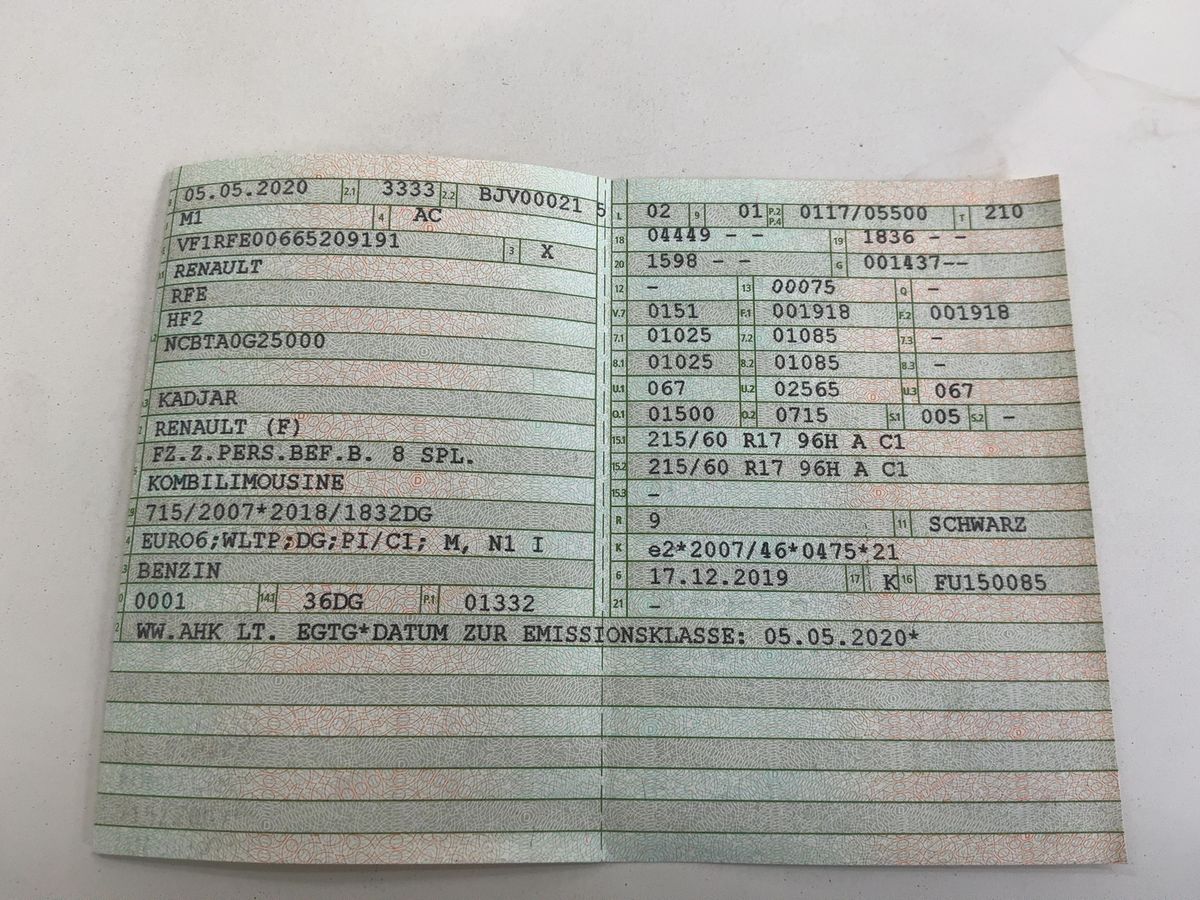 05.05.2020 2.1 3333 2.2 BJV00021 5
M1 4 AC
VF1RFE00665209191 3 X
RENAULT
RFE
HF2
NCBTA0G25000
KADJAR
RENAULT (F)
FZ.Z.PERS.BEF.B. 8 SPL.
KOMBILIMOUSINE
715/2007*2018/1832DG
EURO6;WLTP;DG;PI/CI; M, N1 I
BENZIN
0001 14.1 36DG P.1 01332
L 02 9 01 P.2 P.4 0117/05500 T 210
18 04449 - - 19 1836 - -
20 1598 - - G 001437--
12 - 13 00075 Q -
V.7 0151 F.1 001918 F.2 001918
7.1 01025 7.2 01085 7.3 -
8.1 01025 8.2 01085 8.3 -
U.1 067 U.2 02565 U.3 067
O.1 01500 O.2 0715 S.1 005 S.2 -
15.1 215/60 R17 96H A C1
15.2 215/60 R17 96H A C1
15.3 -
R 9 11 SCHWARZ
K e2*2007/46*0475*21
6 17.12.2019 17 K 16 FU150085
21 -
WW.AHK LT. EGTG*DATUM ZUR EMISSIONSKLASSE: 05.05.2020*